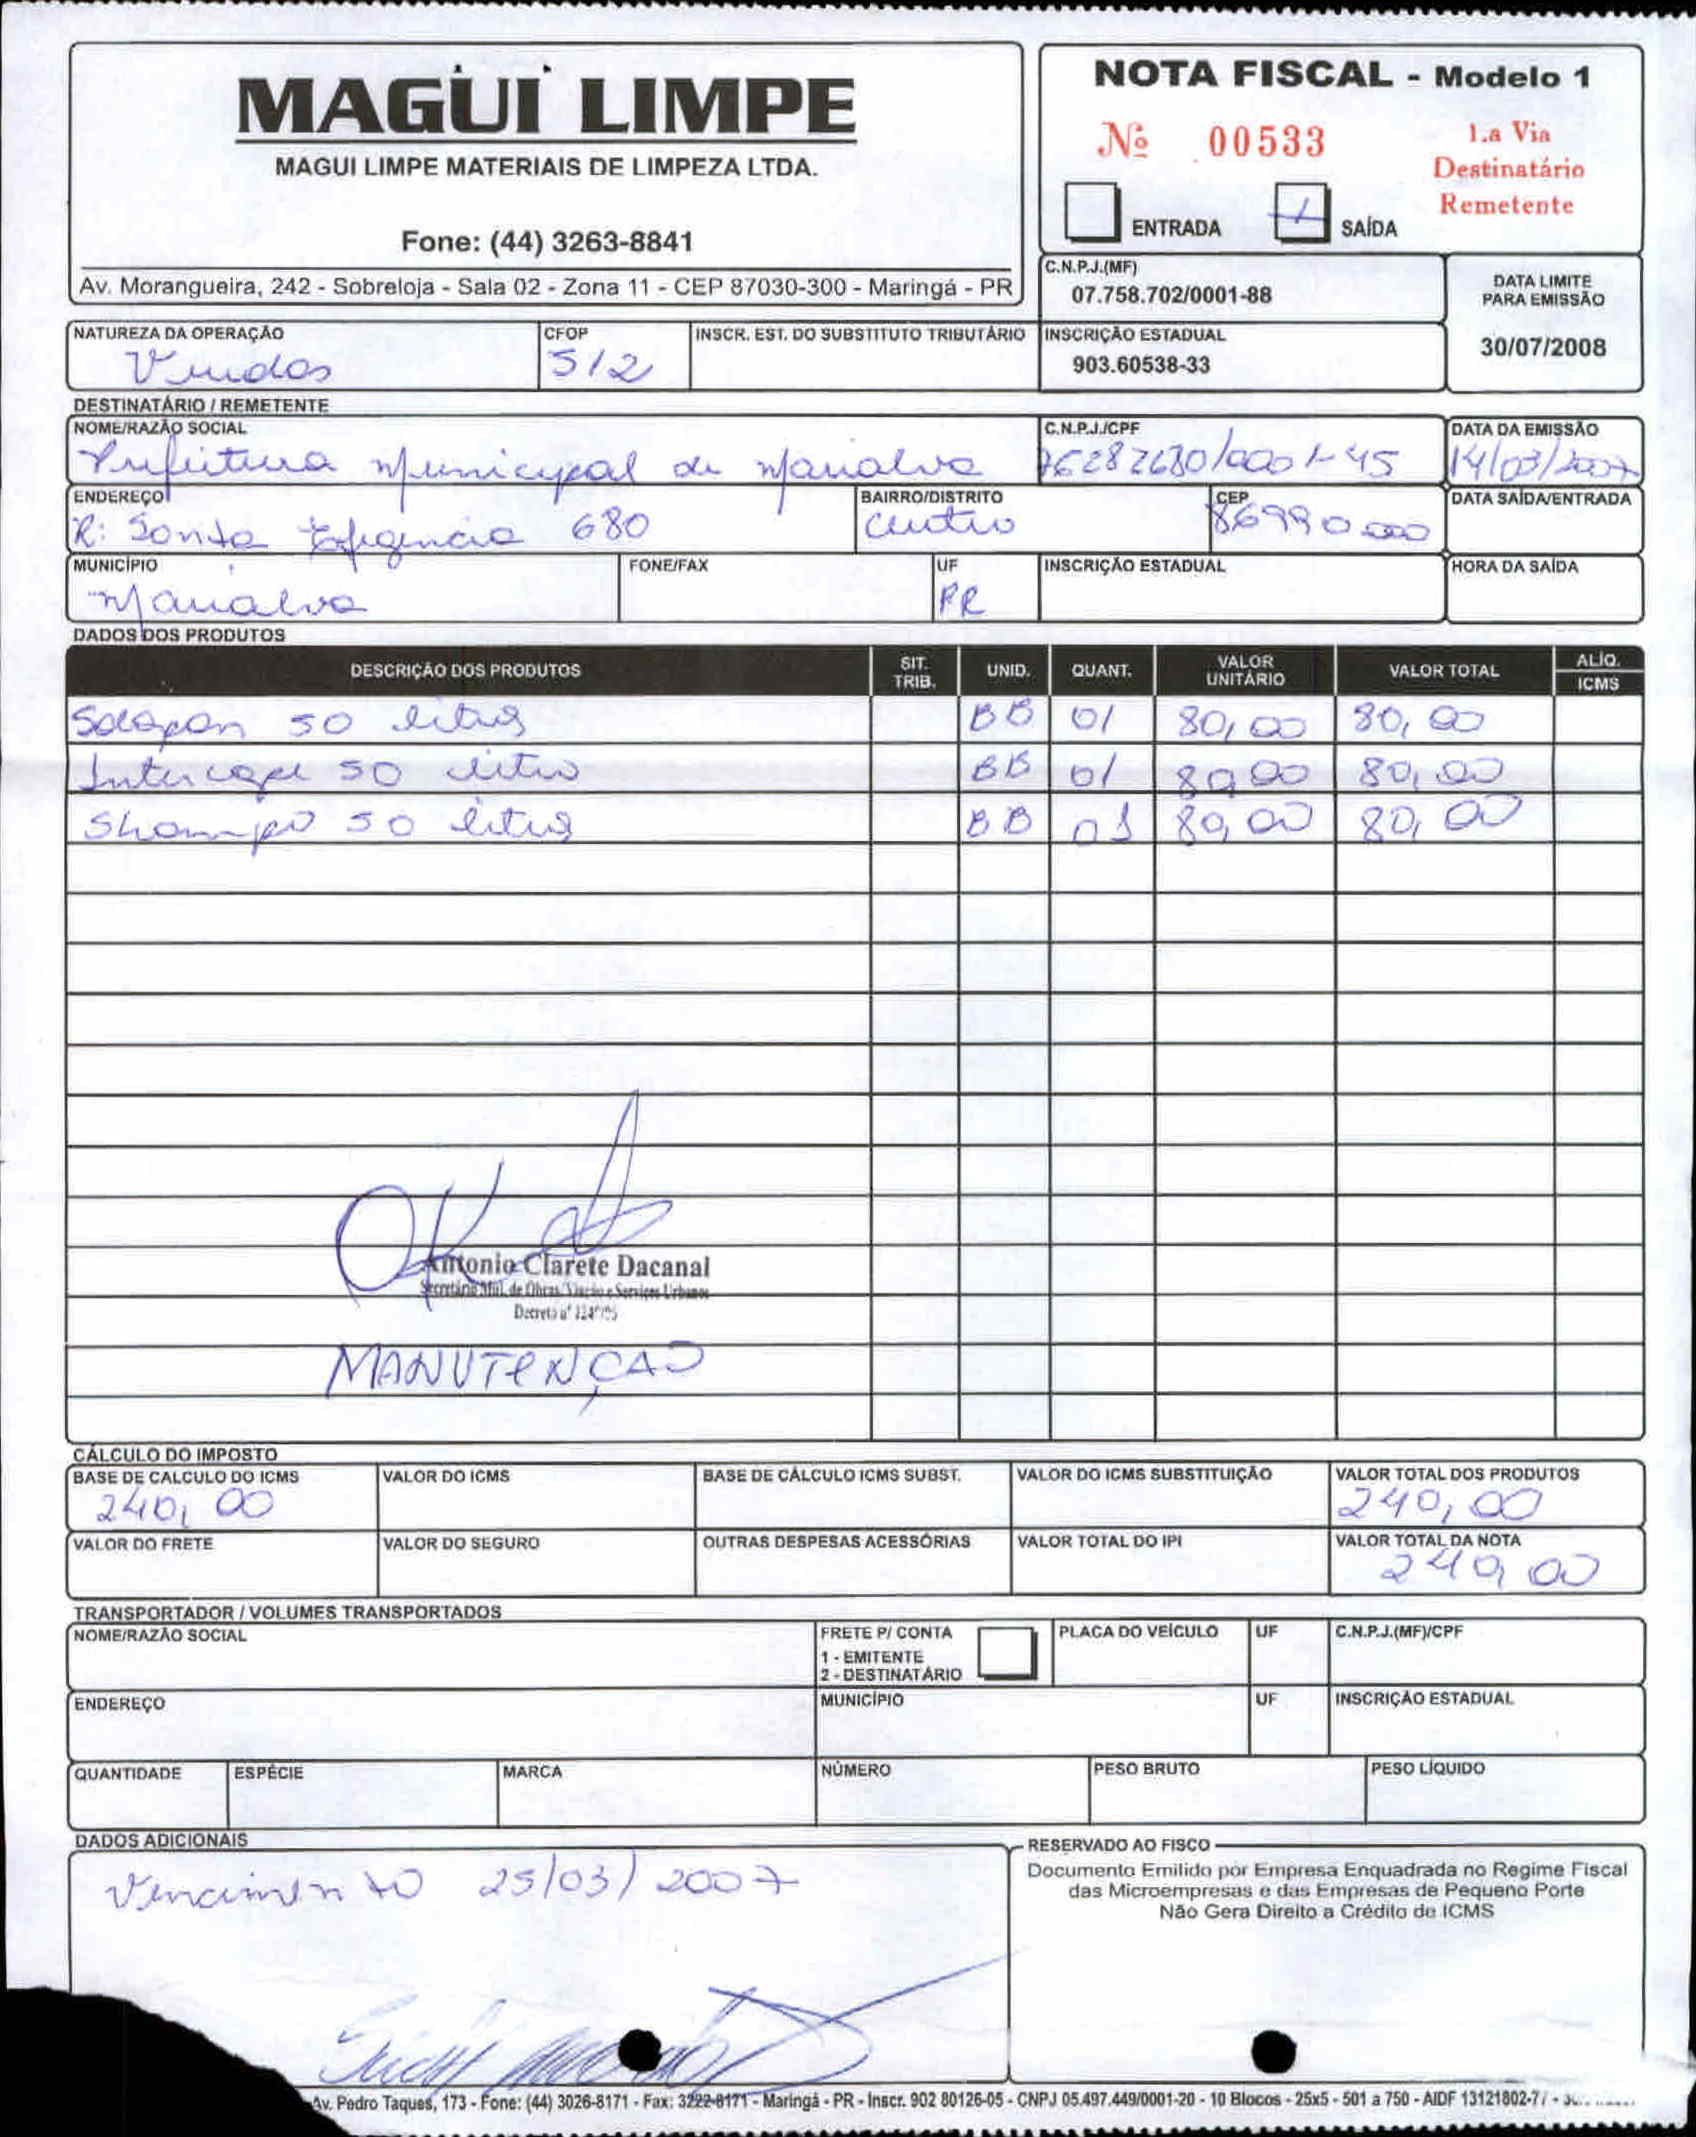 MAGUI LIMPE
MAGUI LIMPE MATERIAIS DE LIMPEZA LTDA.
Fone: (44) 3263-8841
Av. Morangueira, 242 - Sobreloja - Sala 02 - Zona 11 - CEP 87030-300 - Maringá - PR
NOTA FISCAL - Modelo 1
Nº 00533
1.a Via
Destinatário
Remetente
ENTRADA SAÍDA
C.N.P.J.(MF)
07.758.702/0001-88
DATA LIMITE
PARA EMISSÃO
30/07/2008
NATUREZA DA OPERAÇÃO CFOP INSCR. EST. DO SUBSTITUTO TRIBUTÁRIO INSCRIÇÃO ESTADUAL
Vendas 512 903.60538-33
DESTINATÁRIO / REMETENTE
NOME/RAZÃO SOCIAL C.N.P.J./CPF DATA DA EMISSÃO
Prefeitura Municipal de Marialva 76282680/0001-45 14/03/2007
ENDEREÇO BAIRRO/DISTRITO CEP DATA SAÍDA/ENTRADA
R: Santa Efigencia 680 Centro 86990000
MUNICÍPIO FONE/FAX UF INSCRIÇÃO ESTADUAL HORA DA SAÍDA
Marialva PR
DADOS DOS PRODUTOS
DESCRIÇÃO DOS PRODUTOS SIT. TRIB. UNID. QUANT. VALOR UNITÁRIO VALOR TOTAL ALÍQ. ICMS
Solopan 50 litros BB 01 80,00 80,00
Intercape 50 litros BB 01 80,00 80,00
Shampo 50 litros BB 01 80,00 80,00
OK
Antonio Clarete Dacanal
Secretário Mul. de Obras, Viação e Serviços Urbanos
Decreto nº
MANUTENÇAO
CÁLCULO DO IMPOSTO
BASE DE CALCULO DO ICMS VALOR DO ICMS BASE DE CÁLCULO ICMS SUBST. VALOR DO ICMS SUBSTITUIÇÃO VALOR TOTAL DOS PRODUTOS
240,00 240,00
VALOR DO FRETE VALOR DO SEGURO OUTRAS DESPESAS ACESSÓRIAS VALOR TOTAL DO IPI VALOR TOTAL DA NOTA
240,00
TRANSPORTADOR / VOLUMES TRANSPORTADOS
NOME/RAZÃO SOCIAL FRETE P/ CONTA PLACA DO VEÍCULO UF C.N.P.J.(MF)/CPF
1 - EMITENTE
2 - DESTINATÁRIO
ENDEREÇO MUNICÍPIO UF INSCRIÇÃO ESTADUAL
QUANTIDADE ESPÉCIE MARCA NÚMERO PESO BRUTO PESO LÍQUIDO
DADOS ADICIONAIS
Vencimento 25/03/2007
RESERVADO AO FISCO
Documento Emitido por Empresa Enquadrada no Regime Fiscal
das Microempresas e das Empresas de Pequeno Porte
Não Gera Direito a Crédito de ICMS
Av. Pedro Taques, 173 - Fone: (44) 3026-8171 - Fax: 3222-8171 - Maringá - PR - Inscr. 902 80126-05 - CNPJ 05.497.449/0001-20 - 10 Blocos - 25x5 - 501 a 750 - AIDF 13121802-77